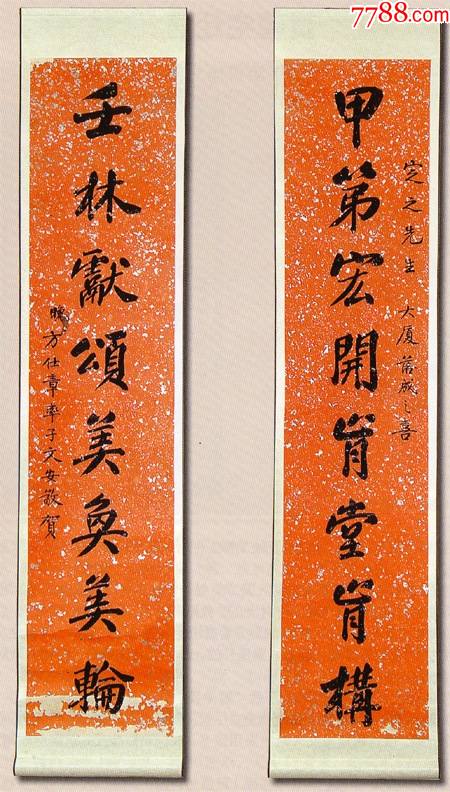 7788.com
甲第宏開肯堂肯構
定之先生 大厦落成之喜
壬林獻頌美奐美輪
晚方仕章率子文安敬賀